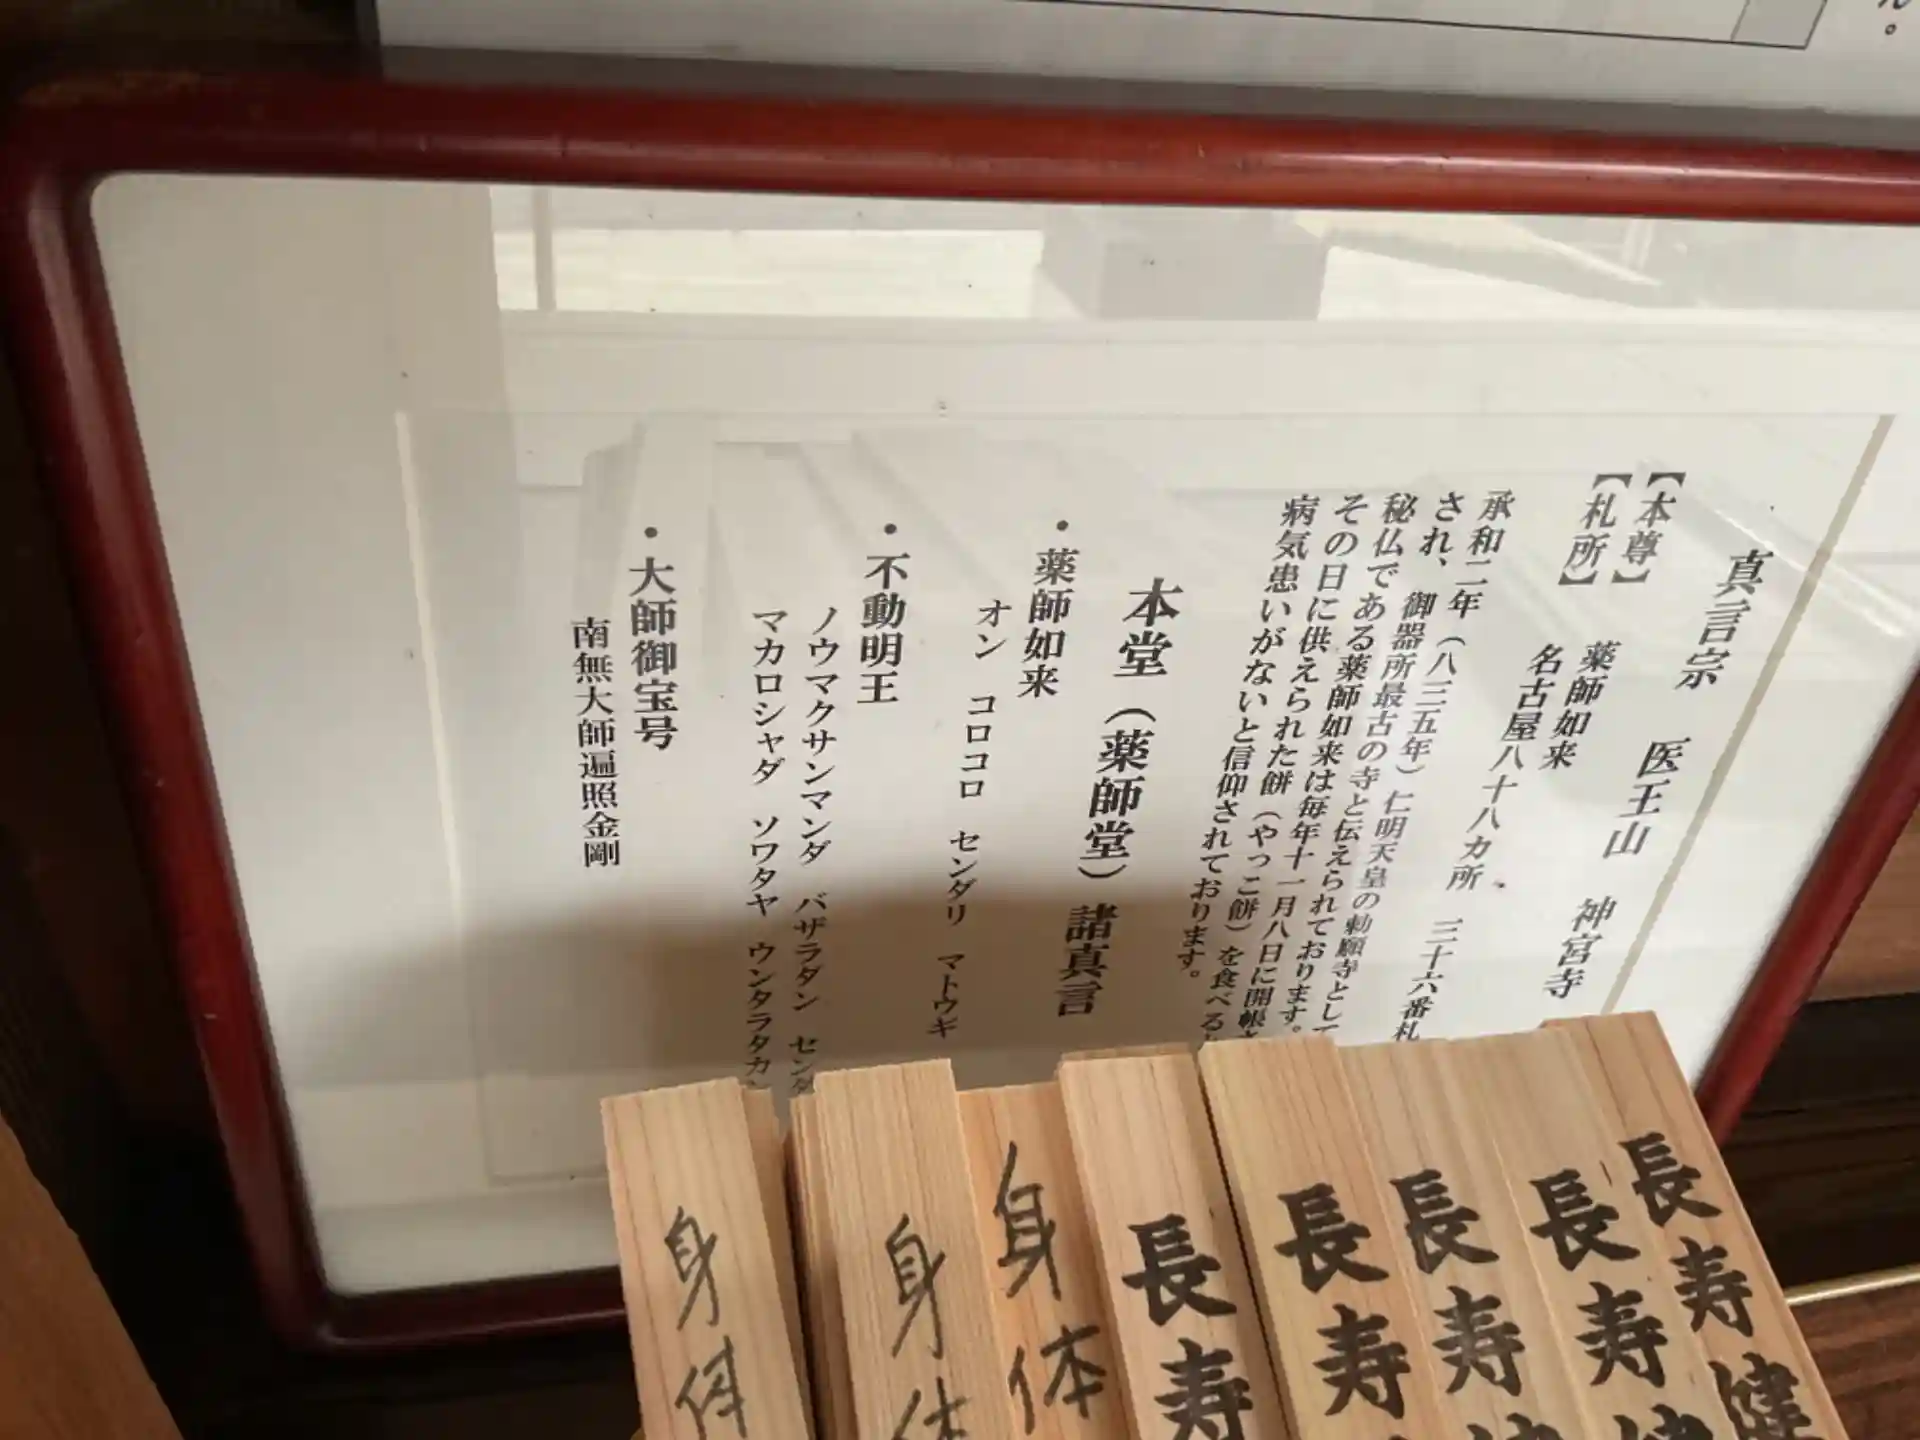 ん。
真言宗 医王山 神宮寺
【本尊】 薬師如来
【札所】 名古屋八十八カ所 三十六番札
承和二年（八三五年）仁明天皇の勅願寺として
され、御器所最古の寺と伝えられております。
秘仏である薬師如来は毎年十一月八日に開帳さ
その日に供えられた餅（やっこ餅）を食べると
病気患いがないと信仰されております。
本堂（薬師堂）諸真言
・薬師如来
オン コロコロ センダリ マトウギ
・不動明王
ノウマクサンマンダ バザラダン センダ
マカロシャダ ソワタヤ ウンタラタカン
・大師御宝号
南無大師遍照金剛
身体
身体
身体
長寿
長寿
長寿健
長寿健
長寿健